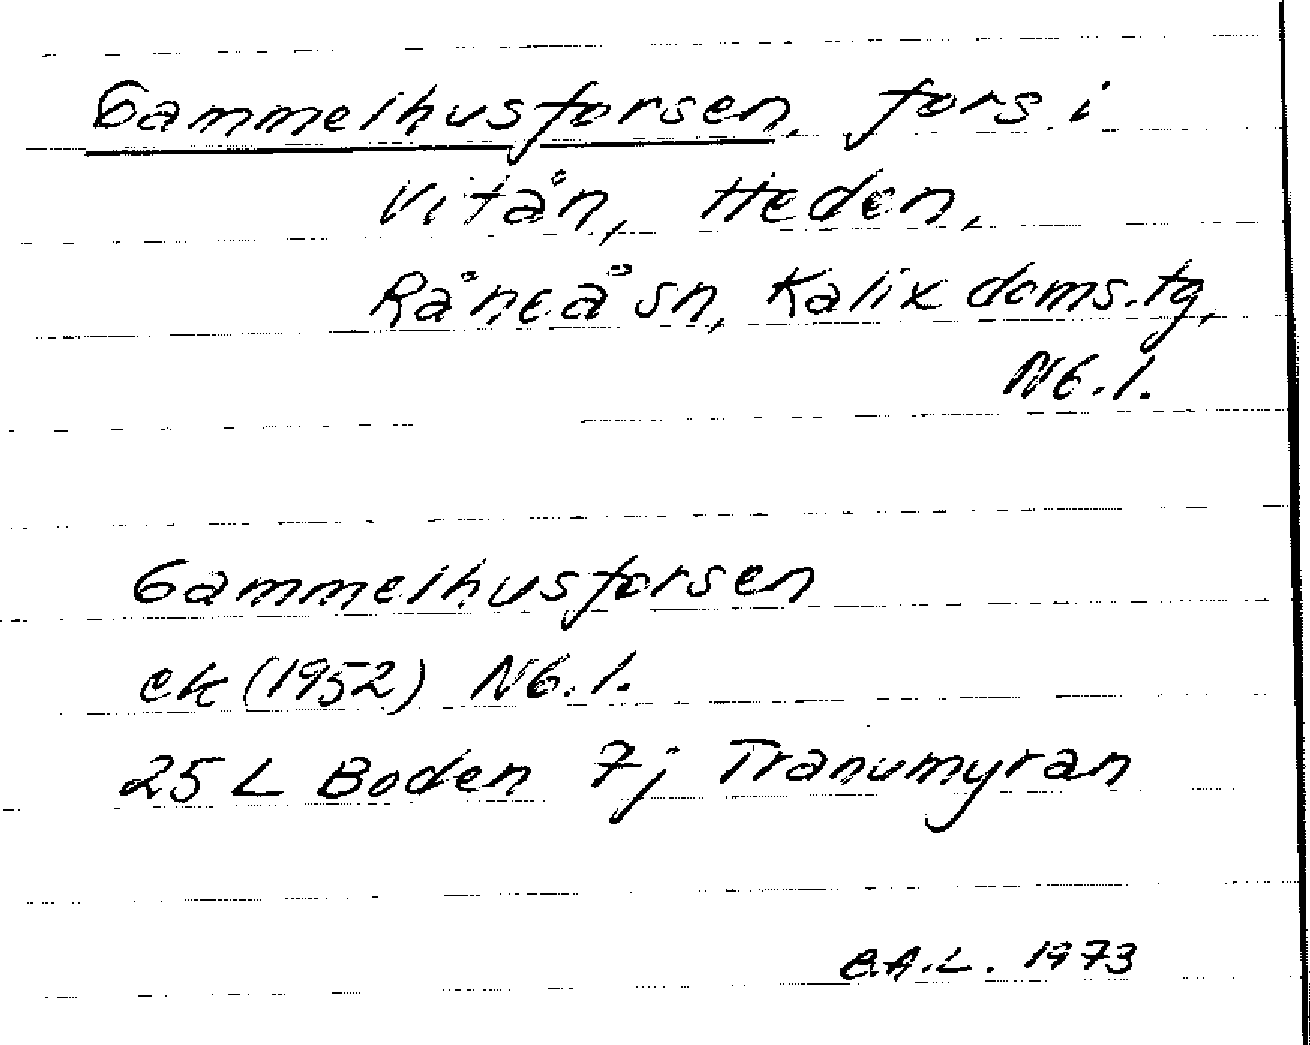 Gammelhusforsen, fors i
Vitån, Heden,
Råneå sn, Kalix doms.tg,
Nb.l.
Gammelhusforsen
ek (1952) Nb.l.
25 L Boden 7j Tranumyran
B.A.L. 1973